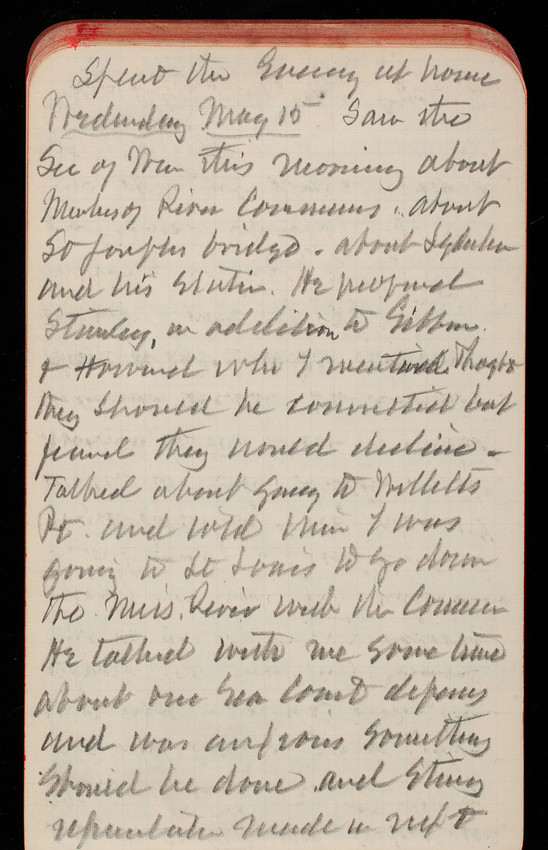 Spent the Evening at home
Wednesday May 15 Saw the
Sec of War this morning about
Members of River Commens. about
St Josephs bridge. about
and his Statue. He proposed
Stanley, in addition to Gibbon
& Howard who I mentioned. Thought
they should be consulted but
feared they would decline -
Talked about going to Willetts
Pt. and told him I was
going to St Louis to go down
the Miss. River with the Commen
He talked with me some time
about our Sea Coast defenses
and was anxious something
should be done and strong
made in ref to